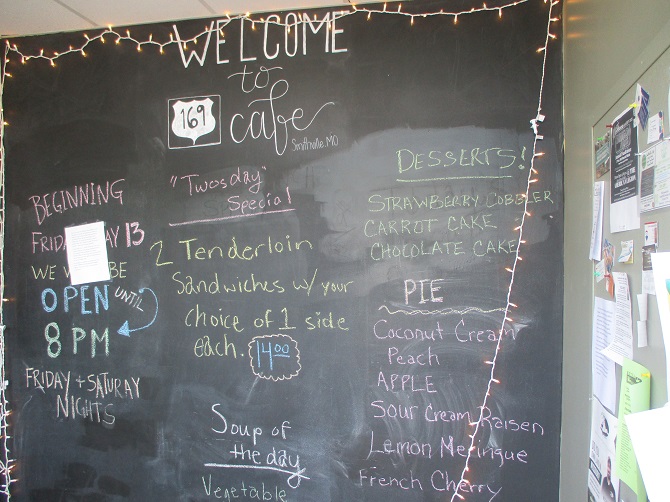 WELCOME
to
169 café
Smithville, MO
BEGINNING
FRIDAY 13
WE BE
OPEN UNTIL
8 PM
FRIDAY + SATURAY
NIGHTS
"Twosday"
Special
2 Tenderloin
Sandwiches w/ your
choice of 1 side
each. 14.00
Soup of
the day
Vegetable
DESSERTS!
STRAWBERRY COBBLER
CARROT CAKE
CHOCOLATE CAKE
PIE
Coconut Cream
Peach
APPLE
Sour Cream Raisen
Lemon Meringue
French Cherry